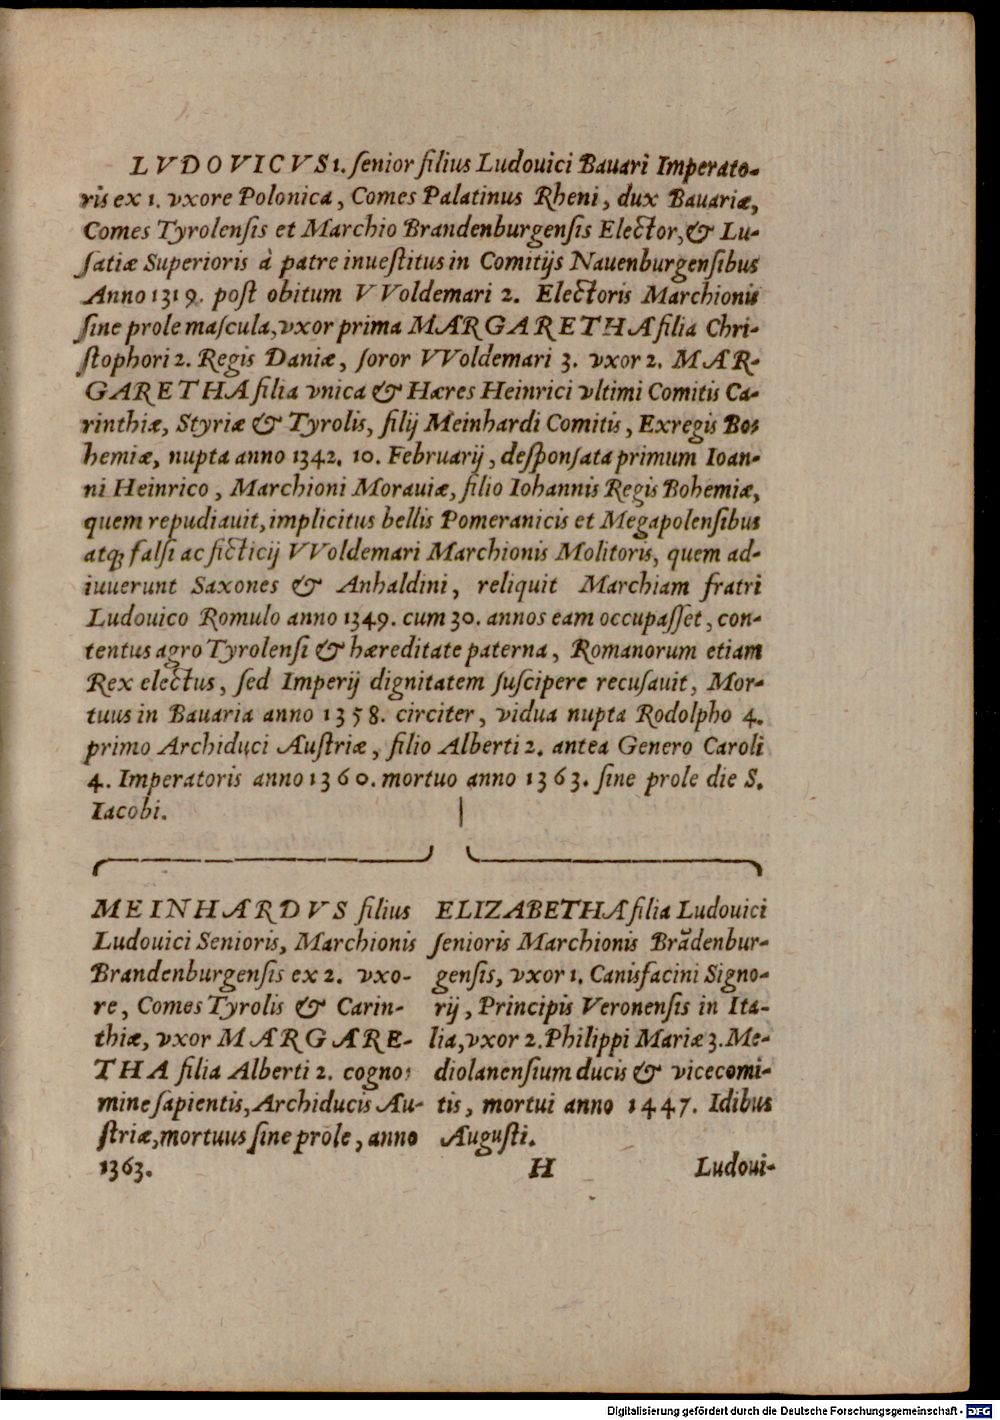 LVDOVICVS 1. ſenior filius Ludouici Bauari Imperato-
ris ex 1. vxore Polonica, Comes Palatinus Rheni, dux Bauariæ,
Comes Tyrolenſis et Marchio Brandenburgenſis Elector, & Lu-
ſatiæ Superioris à patre inueſtitus in Comitijs Nauenburgenſibus
Anno 1319. poſt obitum VVoldemari 2. Electoris Marchionis
ſine prole maſcula, vxor prima MARGARETHA filia Chri-
ſtophori 2. Regis Daniæ, ſoror VVoldemari 3. vxor 2. MAR-
GARETHA filia vnica & Hæres Heinrici vltimi Comitis Ca-
rinthiæ, Styriæ & Tyrolis, filij Meinhardi Comitis, Exregis Bo-
hemiæ, nupta anno 1342. 10. Februarij, deſponſata primum Ioan-
ni Heinrico, Marchioni Morauiæ, filio Iohannis Regis Bohemiæ,
quem repudiauit, implicitus bellis Pomeranicis et Megapolenſibus
atq; falſi ac ficticij VVoldemari Marchionis Molitoris, quem ad-
iuuerunt Saxones & Anhaldini, reliquit Marchiam fratri
Ludouico Romulo anno 1349. cum 30. annos eam occupaſſet, con-
tentus agro Tyrolenſi & hæreditate paterna, Romanorum etiam
Rex electus, ſed Imperij dignitatem ſuſcipere recuſauit, Mor-
tuus in Bauaria anno 1358. circiter, vidua nupta Rodolpho 4.
primo Archiduci Auſtriæ, filio Alberti 2. antea Genero Caroli
4. Imperatoris anno 1360. mortuo anno 1363. ſine prole die S.
Iacobi.
MEINHARDVS filius
Ludouici Senioris, Marchionis
Brandenburgenſis ex 2. vxo-
re, Comes Tyrolis & Carin-
thiæ, vxor MARGARE-
THA filia Alberti 2. cogno-
mine ſapientis, Archiducis Au-
ſtriæ, mortuus ſine prole, anno
1363.
ELIZABETHA filia Ludouici
ſenioris Marchionis Brãdenbur-
genſis, vxor 1. Canisfacini Signo-
rij, Principis Veronenſis in Ita-
lia, vxor 2. Philippi Mariæ 3. Me-
diolanenſium ducis & vicecomi-
tis, mortui anno 1447. Idibus
Auguſti.
H Ludoui-
Digitalisierung gefördert durch die Deutsche Forschungsgemeinschaft - DFG